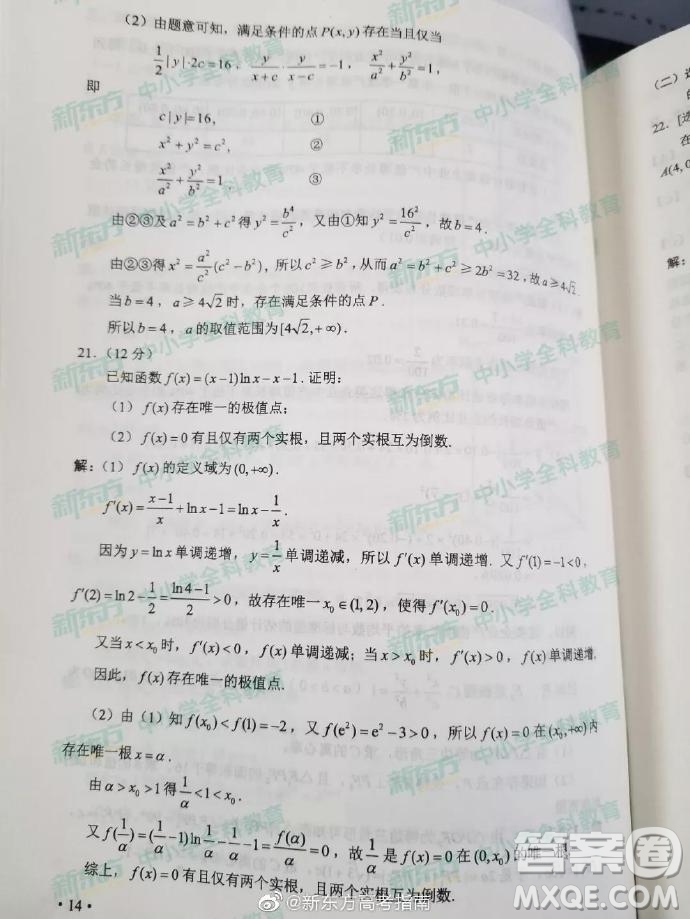 （2）由题意可知，满足条件的点 P(x, y) 存在当且仅当
1/2|y|·2c=16，y/(x+c)·y/(x−c)=−1，x²/a²+y²/b²=1，
即
c|y|=16， ①
x²+y²=c²， ②
x²/a²+y²/b²=1． ③
由②③及 a²=b²+c² 得 y²=b⁴/c²，又由①知 y²=16²/c²，故 b=4．
由②③得 x²=a²/c²(c²−b²)，所以 c²≥b²，从而 a²=b²+c²≥2b²=32，故 a≥4√2．
当 b=4，a≥4√2 时，存在满足条件的点 P．
所以 b=4，a 的取值范围为[4√2,+∞)．
21．（12 分）
已知函数 f(x)=(x−1)ln x−x−1．证明：
（1）f(x) 存在唯一的极值点；
（2）f(x)=0 有且仅有两个实根，且两个实根互为倒数．
解：（1）f(x) 的定义域为(0,+∞)．
f′(x)=(x−1)/x+ln x−1=ln x−1/x．
因为 y=ln x 单调递增，y=1/x 单调递减，所以 f′(x) 单调递增．又 f′(1)=−1<0，
f′(2)=ln 2−1/2=(ln 4−1)/2>0，故存在唯一 x₀∈(1,2)，使得 f′(x₀)=0．
又当 x<x₀ 时，f′(x)<0，f(x) 单调递减；当 x>x₀ 时，f′(x)>0，f(x) 单调递增．
因此，f(x) 存在唯一的极值点．
（2）由（1）知 f(x₀)<f(1)=−2，又 f(e²)=e²−3>0，所以 f(x)=0 在(x₀,+∞)内
存在唯一根 x=α．
由 α>x₀>1 得 1/α<1<x₀．
又 f(1/α)=(1/α−1)ln 1/α−1/α−1=f(α)/α=0，故 1/α 是 f(x)=0 在(0,x₀)的唯一根．
综上，f(x)=0 有且仅有两个实根，且两个实根互为倒数．
·14·
（二）选
22．[选
在
A(4,0
解：
新东方 中小学全科教育
@新东方高考指南
答案圈